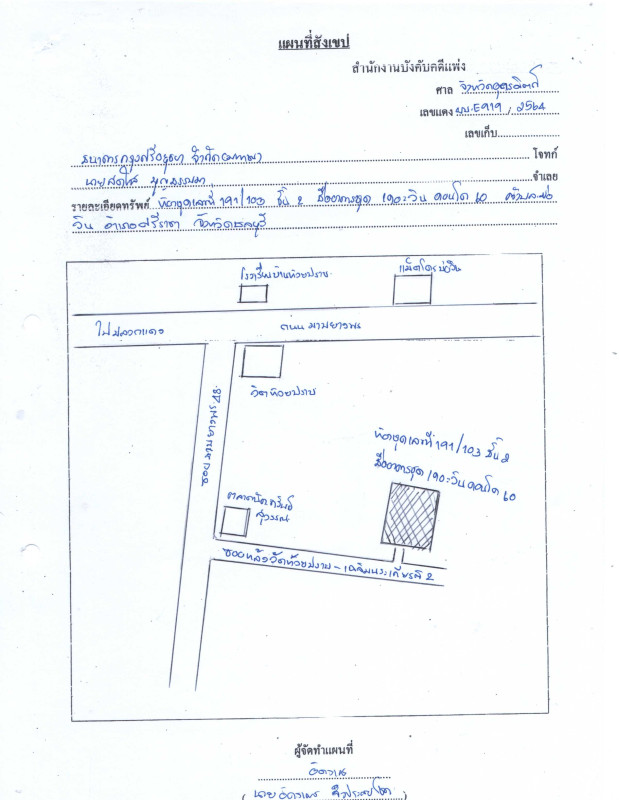 แผนที่สังเขป
สำนักงานบังคับคดีแพ่ง
ศาล จังหวัดอุตรดิตถ์
เลขแดง ผบ.E919 / 2564
เลขเก็บ
ธนาคารกรุงศรีอยุธยา จำกัด(มหาชน) โจทก์
นายสดใส จำเลย
รายละเอียดทรัพย์ ห้องชุดเลขที่ 191/103 ชั้น 2 ชื่ออาคารชุด เดอะวิน คอนโด 10 ตำบลบ่อ
วิน อำเภอศรีราชา จังหวัดชลบุรี
โรงเรียนบ้านห้วยปราบ
แม็คโครบ่อวิน
ไปปลวกแดง
ถนน มาบยางพร
วัดห้วยปราบ
ซอย มาบยางพร 48
ห้องชุดเลขที่ 191/103 ชั้น 2
ชื่ออาคารชุด เดอะวิน คอนโด 10
ตลาดนัด
สุวรรณ
ซอยหลังวัดห้วยปราบ - เฉลิมพระเกียรติ 2
ผู้จัดทำแผนที่